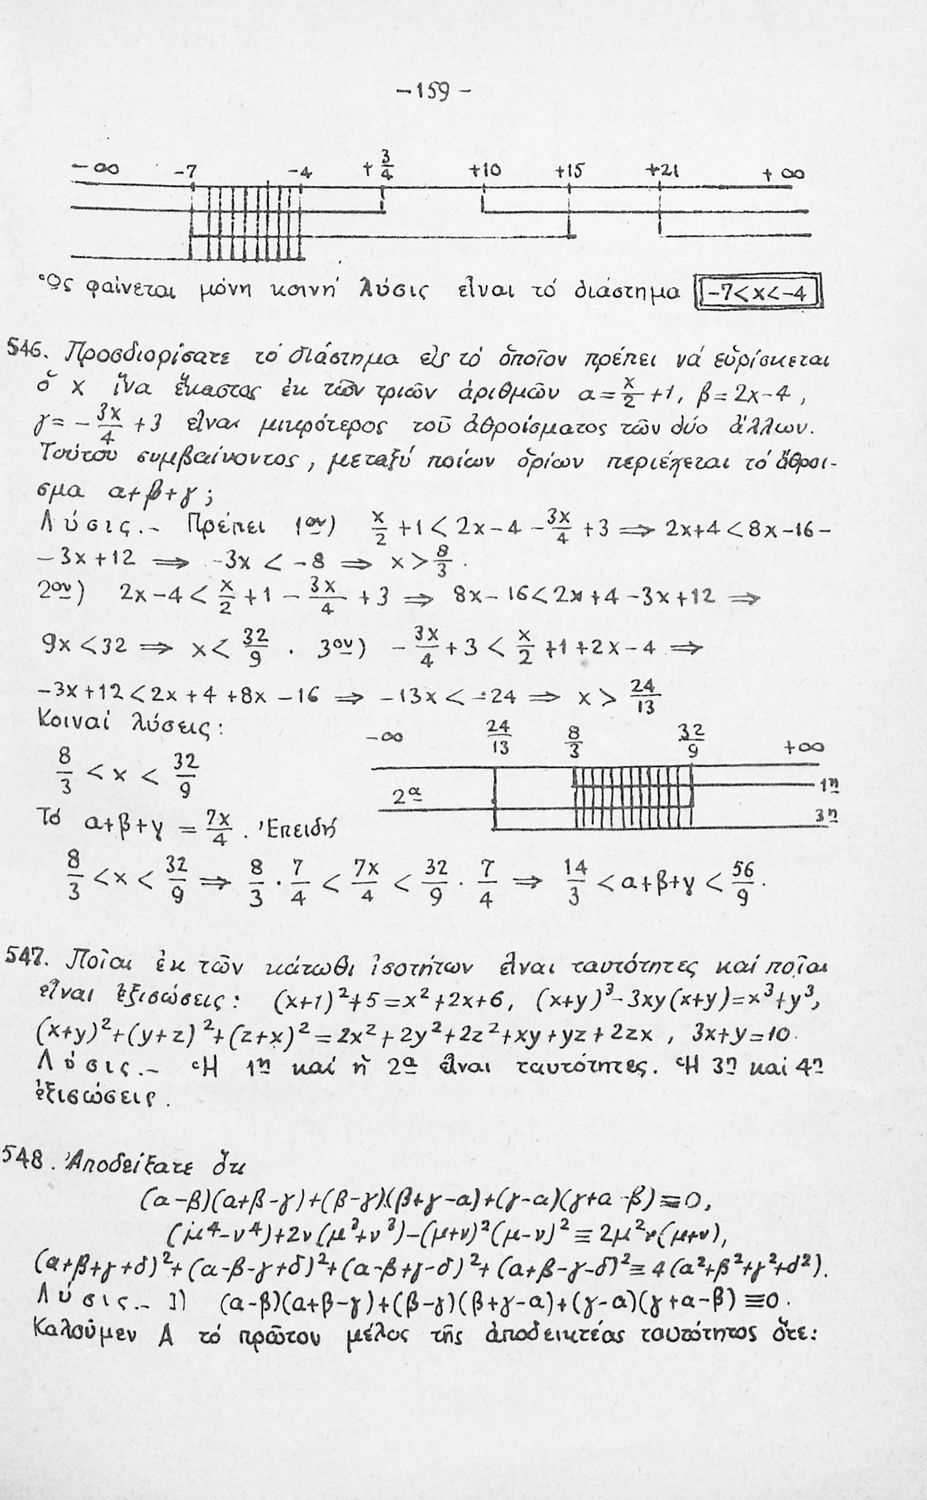 -159-
-∞ -7 -4 +3/4 +10 +15 +21 +∞
Ὡς φαίνεται μόνη κοινή λύσις εἶναι τό διάστημα -7<x<-4
546. Προσδιορίσατε τό διάστημα εἰς τό ὁποῖον πρέπει νά εὑρίσκεται
ὁ x ἵνα ἕκαστος ἐκ τῶν τριῶν ἀριθμῶν α=x/2+1, β=2x-4,
γ=-3x/4+3 εἶναι μικρότερος τοῦ ἀθροίσματος τῶν δύο ἄλλων.
Τούτου συμβαίνοντος, μεταξύ ποίων ὁρίων περιέχεται τό ἄθροι-
σμα α+β+γ;
Λύσις.- Πρέπει 1ον) x/2+1<2x-4-3x/4+3 ⇒ 2x+4<8x-16-
-3x+12 ⇒ -3x<-8 ⇒ x>8/3.
2ον) 2x-4<x/2+1-3x/4+3 ⇒ 8x-16<2x+4-3x+12 ⇒
9x<32 ⇒ x<32/9. 3ον) -3x/4+3<x/2+1+2x-4 ⇒
-3x+12<2x+4+8x-16 ⇒ -13x<-24 ⇒ x>24/13
Κοιναί λύσεις:
8/3<x<32/9
-∞ 24/13 8/3 32/9 +∞
1η
2α
3η
Τό α+β+γ=7x/4. Ἐπειδή
8/3<x<32/9 ⇒ 8/3·7/4<7x/4<32/9·7/4 ⇒ 14/3<α+β+γ<56/9.
547. Ποῖαι ἐκ τῶν κάτωθι ἰσοτήτων εἶναι ταυτότητες καί ποῖαι
εἶναι ἐξισώσεις: (x+1)²+5=x²+2x+6, (x+y)³-3xy(x+y)=x³+y³,
(x+y)²+(y+z)²+(z+x)²=2x²+2y²+2z²+xy+yz+2zx, 3x+y=10.
Λύσις.- Ἡ 1η καί ἡ 2α εἶναι ταυτότητες. Ἡ 3η καί 4η
ἐξισώσεις.
548. Ἀποδείξατε ὅτι
(α-β)(α+β-γ)+(β-γ)(β+γ-α)+(γ-α)(γ+α-β)≡0,
(μ⁴-ν⁴)+2ν(μ³+ν³)-(μ+ν)²(μ-ν)²≡2μ²ν(μ+ν),
(α+β+γ+δ)²+(α-β-γ+δ)²+(α-β+γ-δ)²+(α+β-γ-δ)²≡4(α²+β²+γ²+δ²).
Λύσις.- 1) (α-β)(α+β-γ)+(β-γ)(β+γ-α)+(γ-α)(γ+α-β)≡0.
Καλοῦμεν Α τό πρῶτον μέλος τῆς ἀποδεικτέας ταυτότητος ὅτε: